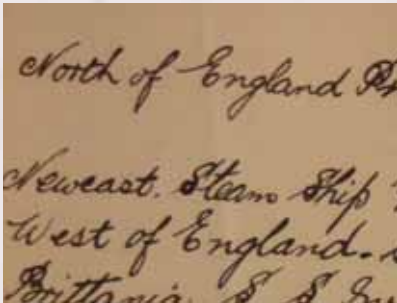 North of England
Newcast. Steam Ship
West of England.
Brittania S S